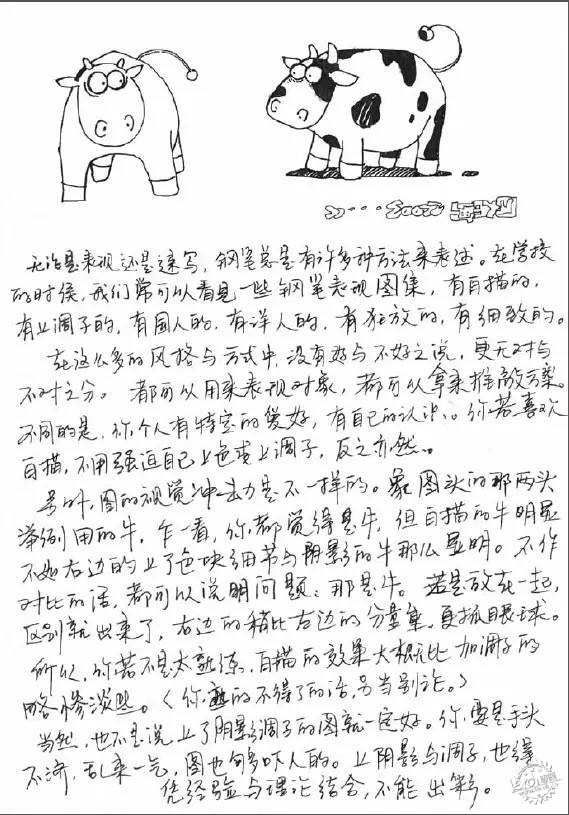 无论是表现还是速写，钢笔总是有许多种方法来表述。在学校
的时候，我们常可以看见一些钢笔表现图集，有白描的，
有上调子的，有国人的，有洋人的，有狂放的，有细致的。
在这么多的风格与方式中，没有好与不好之说，更无对与
不对之分。都可以用来表现对象，都可以拿来推敲方案。
不同的是，你个人有特定的爱好，有自己的认识。你若喜欢
白描，不用强迫自己上色或上调子，反之亦然。
另外，图的视觉冲击力是不一样的。象图头的那两头
举例用的牛，乍一看，你都觉得是牛，但白描的牛明显
不如右边的上了色块细节与阴影的牛那么显明。不作
对比的话，都可以说明问题：那是牛。若是放在一起，
区别就出来了，右边的稍比右边的分量重，更抓眼球。
所以，你若不是太熟练，白描的效果大概比加调子的
略惨淡些。（你熟的不得了的话，另当别论。）
当然，也不是说上了阴影调子的图就一定好。你要是手头
不济，乱来一气，图也够吓人的。上阴影与调子，也得
凭经验与理论结合，不能出彩。